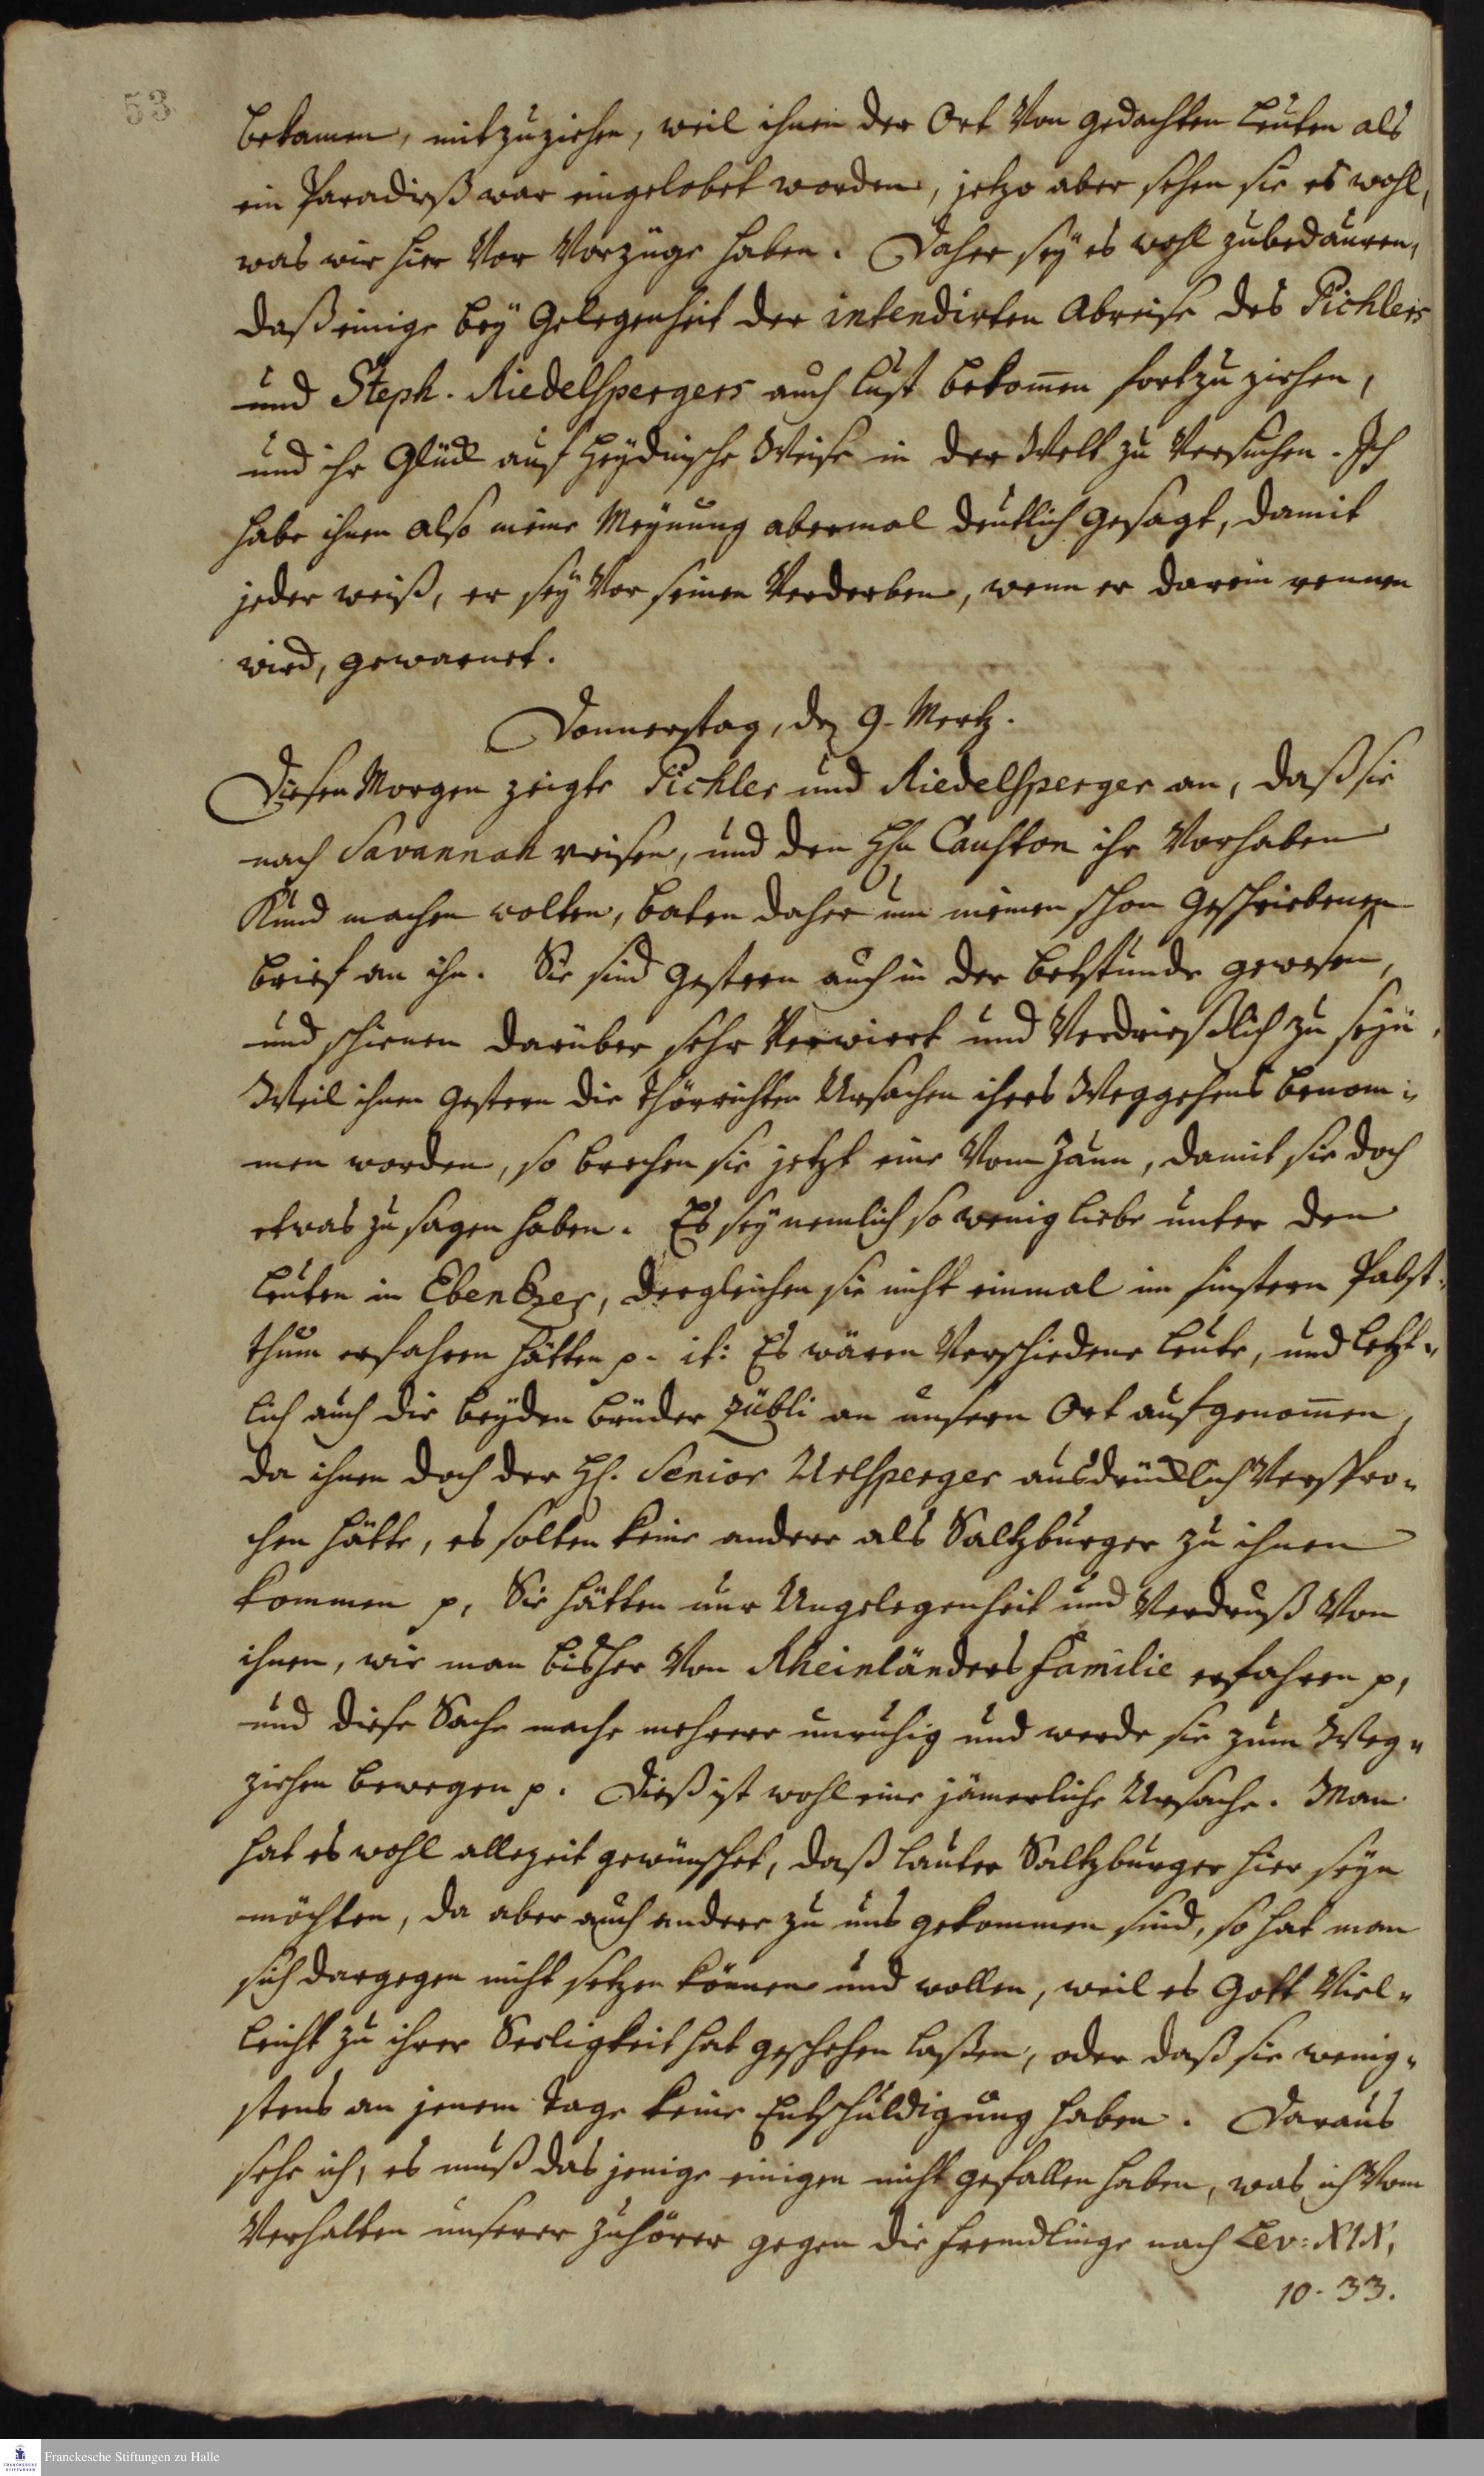 53
bekamen, mitzuziehen, weil ihnen der Ort von gedachten Leuten als
ein Paradieß war eingelobet worden, jetzo aber sehen sie es wohl,
was wir hier vor Vorzüge haben. Daher sey es wohl zubedauren,
daß einige bey Gelegenheit der intendirten Abreise des Pichlers
und Steph. Riedelspergers auch Lust bekom̅en fortzuziehen,
und ihr Glück auf Heydnische Weise in der Welt zu versuchen. Ich
habe ihnen also meine Meynung abermal deutlich gesagt, damit
jeder weiß, er sey vor seinen Verderben, wenn er darein rennen
wird, gewarnet.
Donnerstag, den 9. Mertz.
Diesen Morgen zeigte Pichler und Riedelsperger an, daß sie
nach Savannah reisen, und den Hln Causton ihr Vorhaben
Kund machen wolten, baten daher um meinen schon geschriebenen
brief an ihn. Sie sind gestern auch in der betstunde gewesen,
und schienen darüber sehr verwirrt und verdrießlich zu seyn.
Weil ihnen gestern die thörrichten Ursachen ihres Weggehens benom-
men worden, so brechen sie jetzt eine vom Zaun, damit sie doch
etwas zu sagen haben. Es sey nemlich so wenig liebe unter den
Leuten in Ebenezer, dergleichen sie nicht einmal im finstern Pabst-
thum erfahren hätten p. it: Es wären verschiedene Leute, und letzt-
lich auch die beyden brüder Zübli an unsern Ort aufgenom̅en,
da ihnen doch der H. Senior Urlsperger ausdrücklich verspro-
chen hätte, es solten keine andere als Saltzburger zu ihnen
kommen p, Sie hätten nur Ungelegenheit und Verdruß von
ihnen, wie man bisher von Rheinländers familie erfahren p,
und diese Sache mache mehrere unruhig und werde sie zum Weg-
ziehen bewegen p. Dieß ist wohl eine jämerliche Ursache. Man
hat es wohl allezeit gewünschet, daß lauter Saltzburger hier seyn
möchten, da aber auch andere zu uns gekommen sind, so hat man
sich dargegen nicht setzen können und wollen, weil es Gott viel-
leicht zu ihrer Seeligkeit hat geschehen laßen, oder daß sie wenig-
stens an jenem Tage keine Entschuldigung haben. Daraus
sehe ich, es muß das jenige einigen nicht gefallen haben, was ich vom
Verhalten unserer Zuhörer gegen die fremdlinge nach Lev: XIX,
10. 33.
Franckesche Stiftungen zu Halle